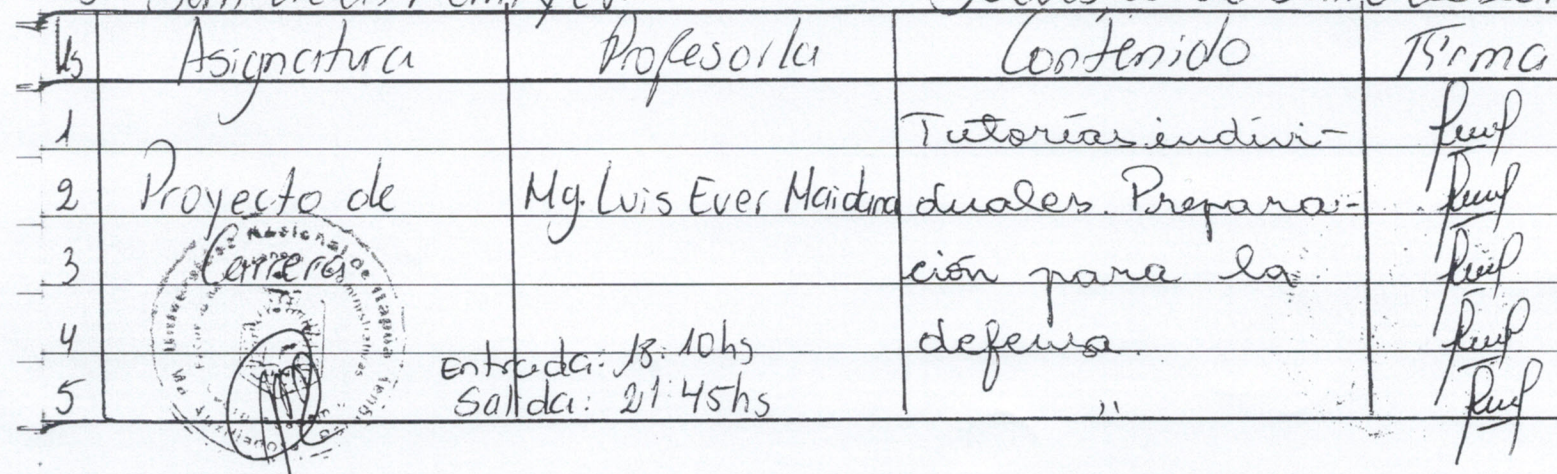 Hs Asignatura Profesor/a Contenido Firma
1 Tutorías indivi-
2 Proyecto de Mg. Luis Ever Maidana duales. Prepara-
3 Carrera ción para la
4 Entrada: 18:10hs defensa.
5 Salida: 21:45hs "
Nacional de Itapúa